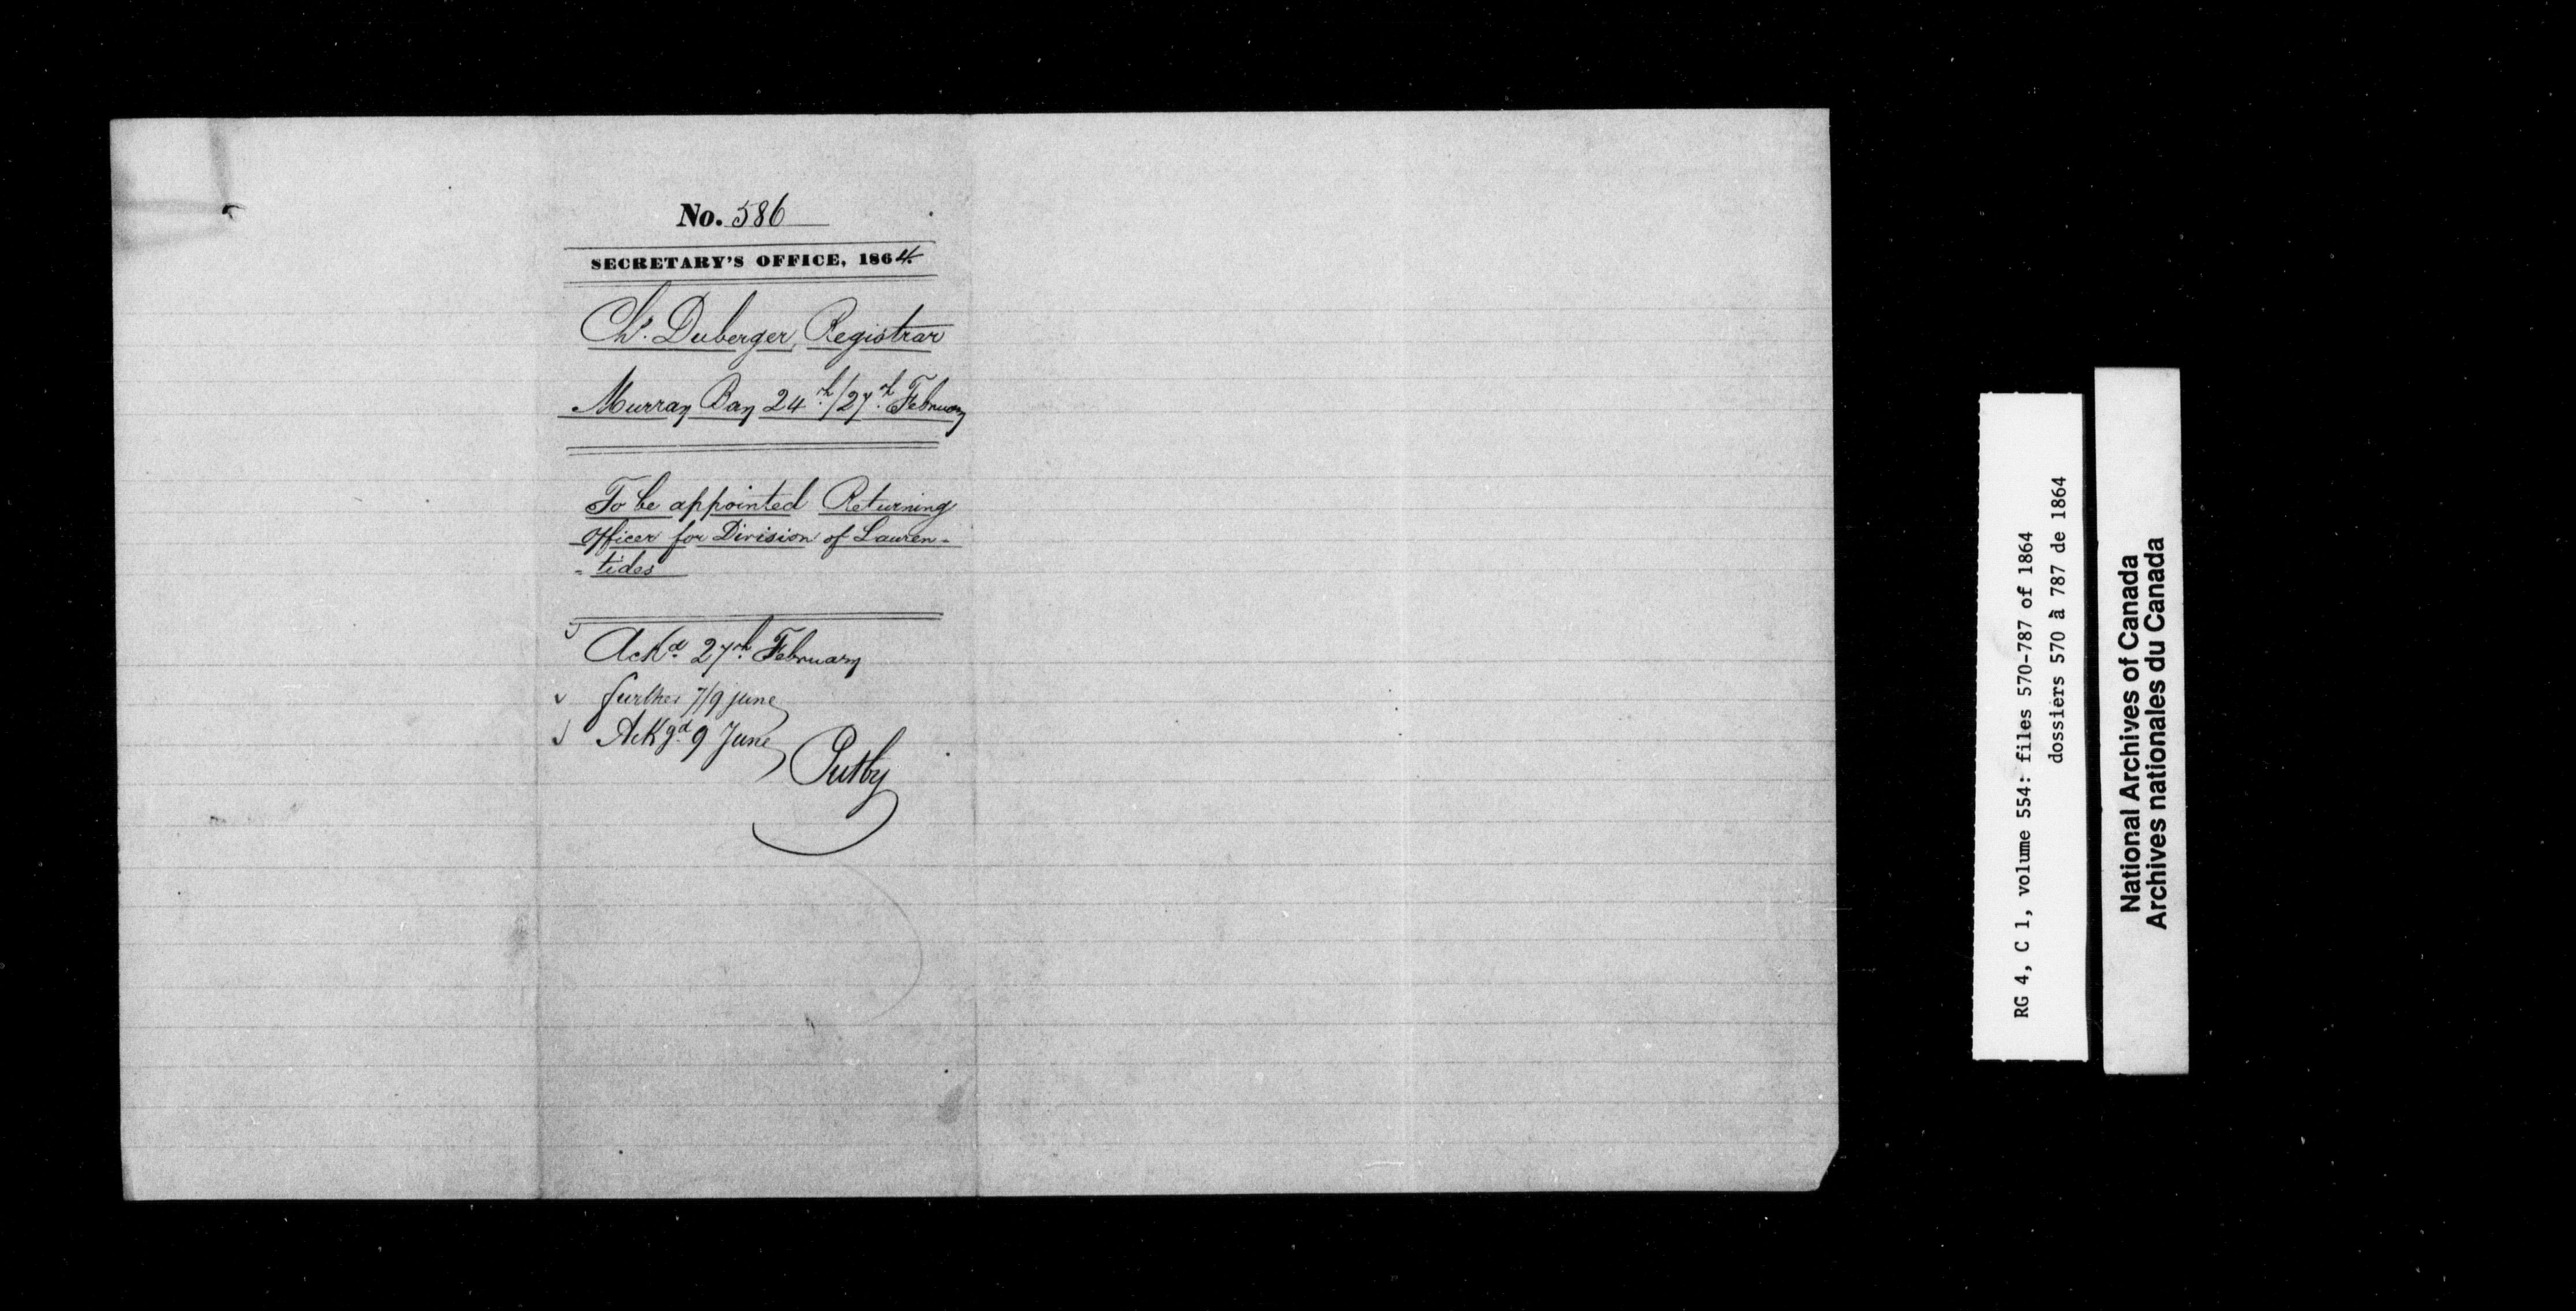 No. 586
SECRETARY'S OFFICE, 1864.
Chs. Duberger, Registrar
Murray Bay 24th./27th. February
To be appointed Returning
Officer for Division of Lauren-
- tides
Ackd. 27th. February
further 7/9 june
Ackgd. 9 June
Putby
RG 4, C 1, volume 554: files 570-787 of 1864
dossiers 570 à 787 de 1864
National Archives of Canada
Archives nationales du Canada